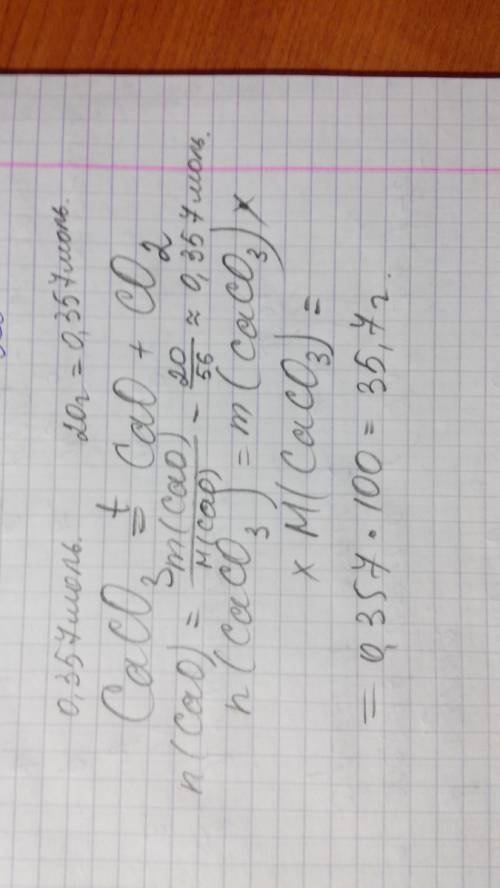 0,357моль. 20г = 0,357моль.
CaCO3 =t CaO + CO2
n(CaO) = m(CaO)/M(CaO) = 20/56 ≈ 0,357моль.
n(CaCO3) = m(CaCO3) ×
× M(CaCO3) =
= 0,357 · 100 = 35,7г.